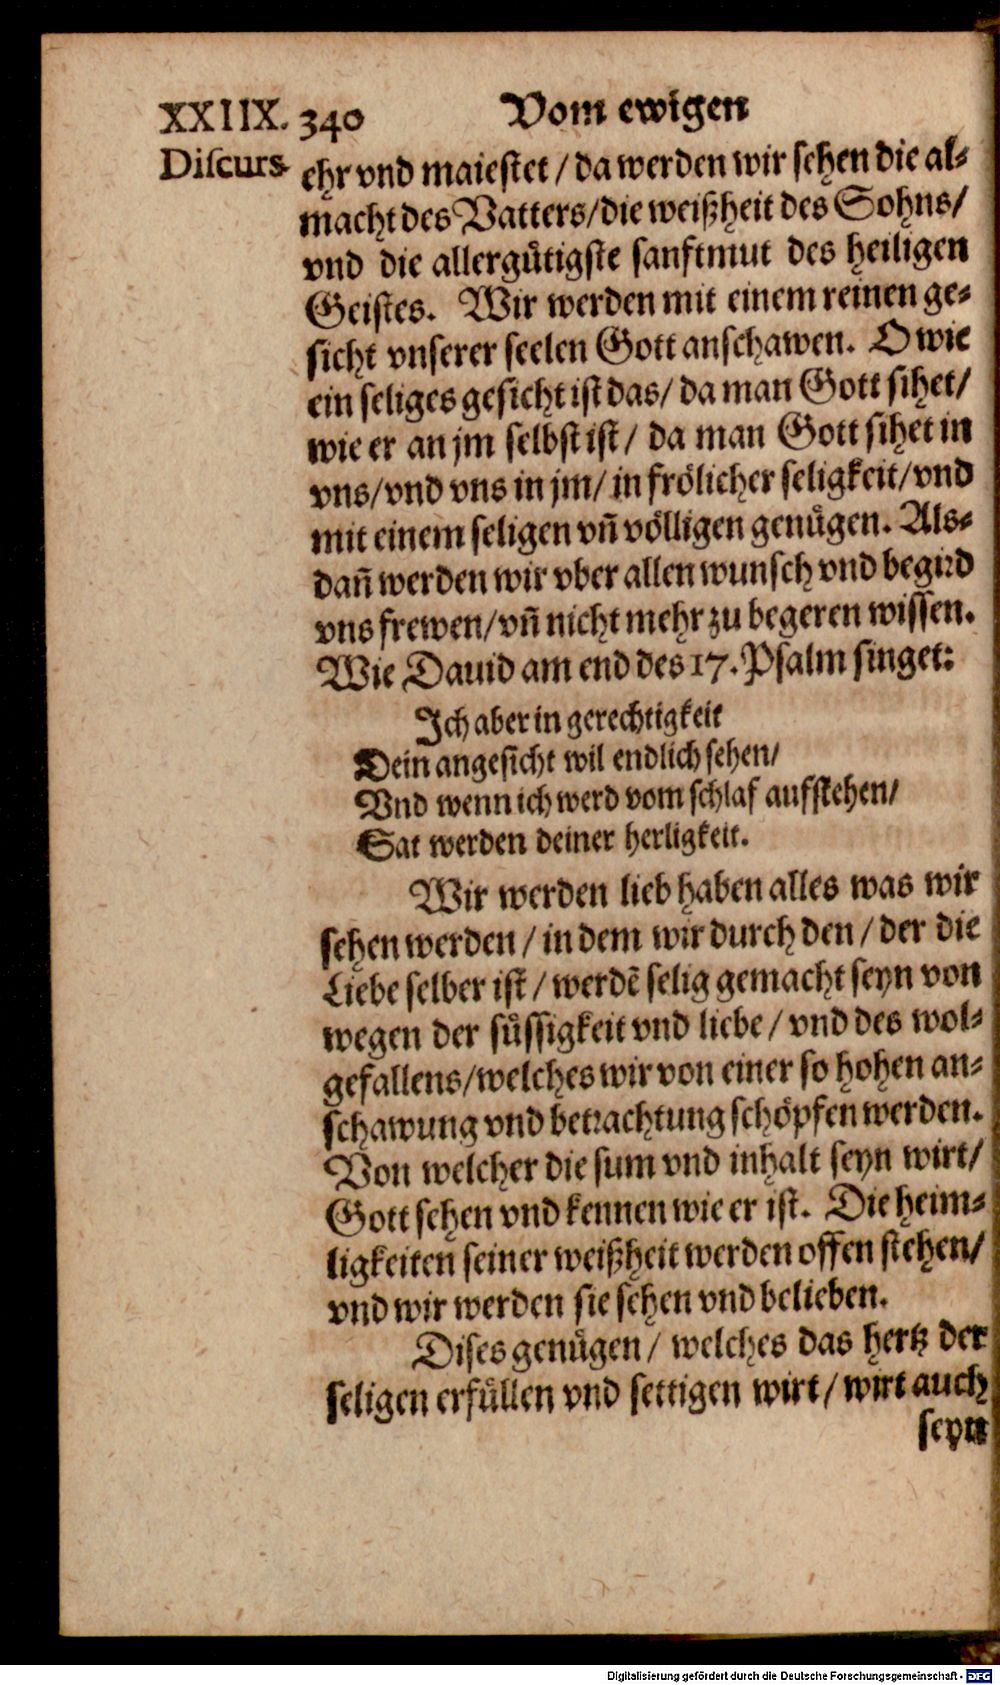 XXIIX. 340 Vom ewigen
Discurs
ehr vnd maiestet / da werden wir sehen die al⸗
macht des Vatters/die weißheit des Sohns/
vnd die allerguͤtigste sanftmut des heiligen
Geistes. Wir werden mit einem reinen ge⸗
sicht vnserer seelen Gott anschawen. O wie
ein seliges gesicht ist das/ da man Gott sihet/
wie er an jm selbst ist/ da man Gott sihet in
vns/vnd vns in jm/ in froͤlicher seligkeit/vnd
mit einem seligen vn̄ voͤlligen genuͤgen. Als⸗
dan̄ werden wir vber allen wunsch vnd begird
vns frewen/vn̄ nicht mehr zu begeren wissen.
Wie Dauid am end des 17. Psalm singet:
Ich aber in gerechtigkeit
Dein angesicht wil endlich sehen/
Vnd wenn ich werd vom schlaf aufstehen/
Sat werden deiner herligkeit.
Wir werden lieb haben alles was wir
sehen werden / in dem wir durch den / der die
Liebe selber ist / werdē selig gemacht seyn von
wegen der suͤssigkeit vnd liebe / vnd des wol⸗
gefallens/welches wir von einer so hohen an⸗
schawung vnd betrachtung schoͤpfen werden.
Von welcher die sum vnd inhalt seyn wirt/
Gott sehen vnd kennen wie er ist. Die heim⸗
ligkeiten seiner weißheit werden offen stehen/
vnd wir werden sie sehen vnd belieben.
Dises genuͤgen / welches das hertz der
seligen erfuͤllen vnd settigen wirt / wirt auch
seyn
Digitalisierung gefördert durch die Deutsche Forschungsgemeinschaft - DFG